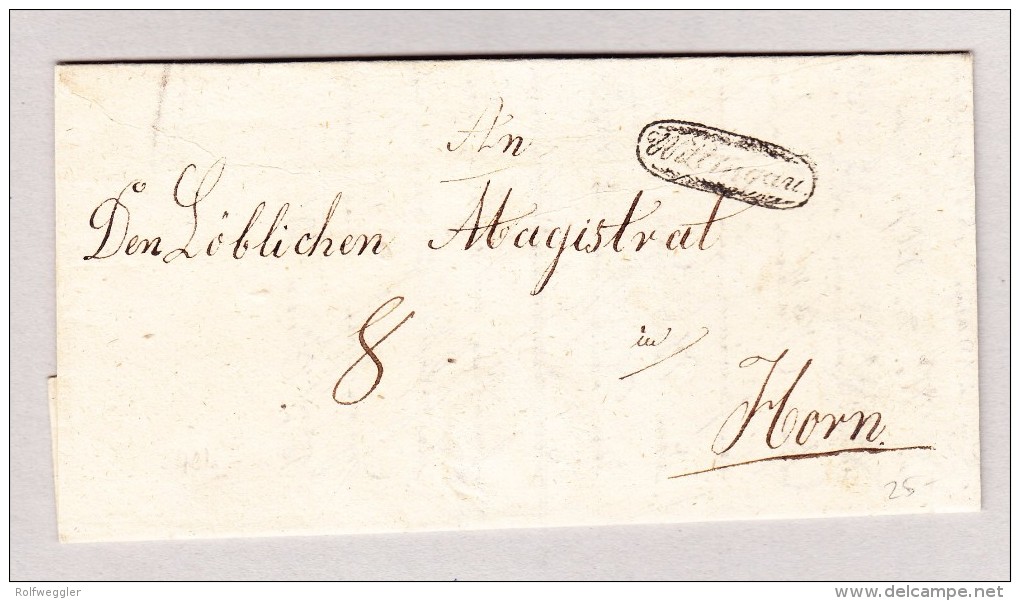 An
Wittingau.
Den Löblichen Magistrat
8
in
Horn.
25-
Rolfweggler
www.delcampe.net